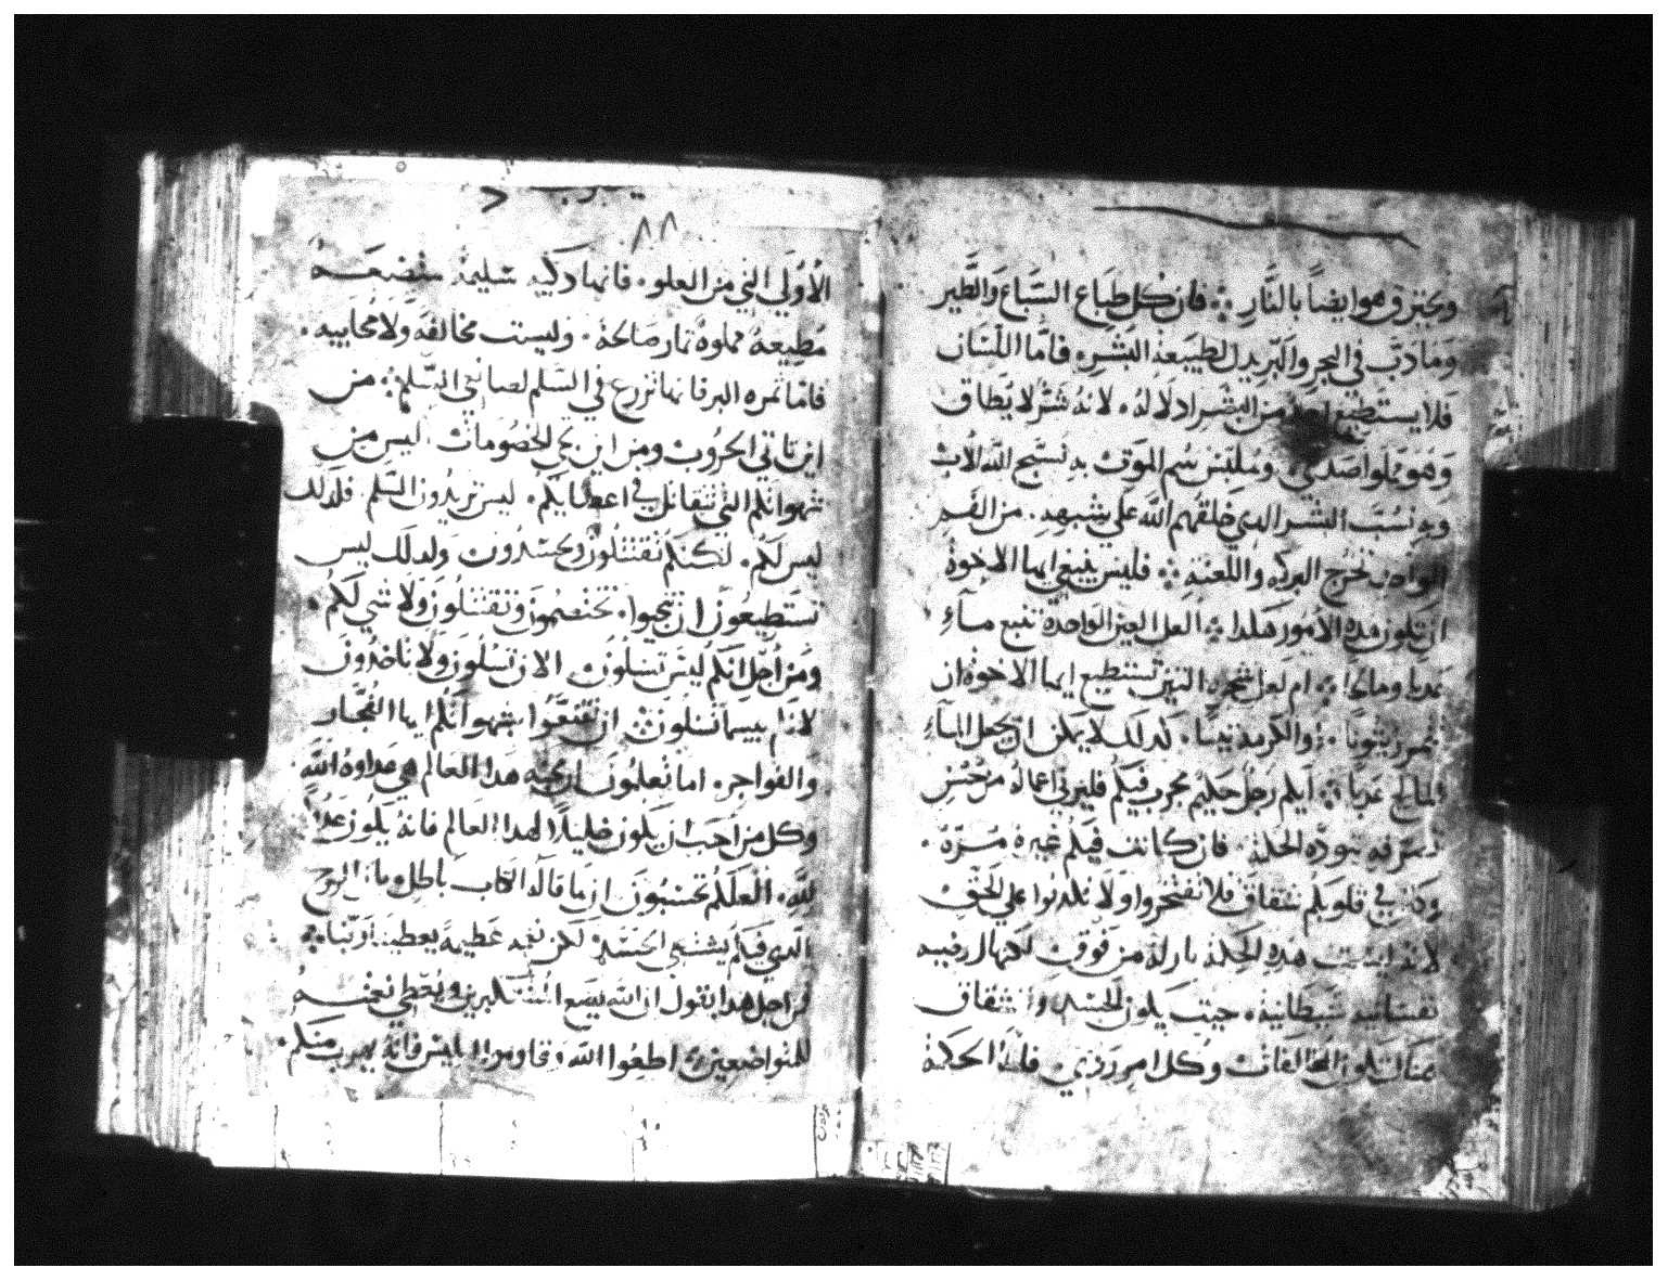 ويحترق هو ايضاً بالنَّارِ ؞ فان كل طبَاع السِّبَاع وَالطَّير
وَمَا دَبّ في البحر والبَر يدل لطبيعة البَشَرِ، فامّا اللسَان
فلا يستطيع احدٌ من البشر اذلاله، لانه شرٌّ لا يُطاق
وَهوَ مملوا سم الموَت به نسَبّح الله الاب
وبه نسُبّ البشر الدي خلقهم الله على شبهه. من الفم
الواحد تخرج البركه واللعنة ؞ فليس ينبغي ايها الاخوة
ان تكون هده الأمور هكدا ؞ العل العين الواحدة تنبع مآءِ
عدبا ومالحا ؞ ام لعل شجره التين تستطيع ايها الاخوة ان
تثمر زيتونًا ؞ والكرمه تينًا. كدلك لا يمكن ان يجعل المآءِ
المالح عدبًا ؞ ايكم رَجُل حكيم مجرب فيكم فليرني اعماله من حُسْن
تصرفه بتودّه الحكمة. فان كانت فيكم غيرة مُرّة.
وكان في قلوبكم شقاق فلا تفتخروا ولا تكدبوا على الحق
لانه ليست هدهِ الحكمة نازلة من فوق لكنها ارضيه
نفسَانيه شيطانية، حيث يكون الحسَد والشقاق
هناك تكون المخالفات وكل امرٍ ردي، فامّا الحكمة
٨٨
الأولَي التي من العلو، فانها دكيه سَليمة متضعَة
مُطيعهٌ مملوهٌ ثمار صَالحة. وليست مخالفَه وَلا محَابيه.
فامّا ثمره البر فانها تزرع في السَلم لصانعي السَّلم ؞ من
اين تاتي الحرُوب ومن اين يجي الخصُومات، ليس من
شهواتكم التي تتقاتل في اعضايكم، ليس تريدون السَّلم فلدلك
ليس لكم. لكنكم تقتتلون وتحسدون ولدلك ليس
تستطيعُون ان تنجحوا، تختصمون وتقتتلون وَلا شي لَكُم.
وَمن اُجل انكم ليسَ تسَلون، الان تسلون وَلا تاخدُونَ
لانكم بيسما تسَلون ان تتنعمُوا بشهواتكم ايها الفجّار
والفواجر، اما تعلمُون ان محبَّه هدا العالم هي عداوة الله
وكل من احَبّ ان يكون خليلًا لهدا العَالم فانهُ يكون عَدوًّا
لله، العلكم تحسَبُون ان ما قاله الكتاب باطل ان الروح
الدي فيكم يشتهي الحسَد لكن نعمه عَظيمة يعطينا رَبّنا ؞
من اجل هدا يقول ان الله يضع المستكبرين ويُعطي نعمته
للمتواضعين ؞ اطيعُوا الله وقاومُوا ابليس فانهُ يهرب منكم.